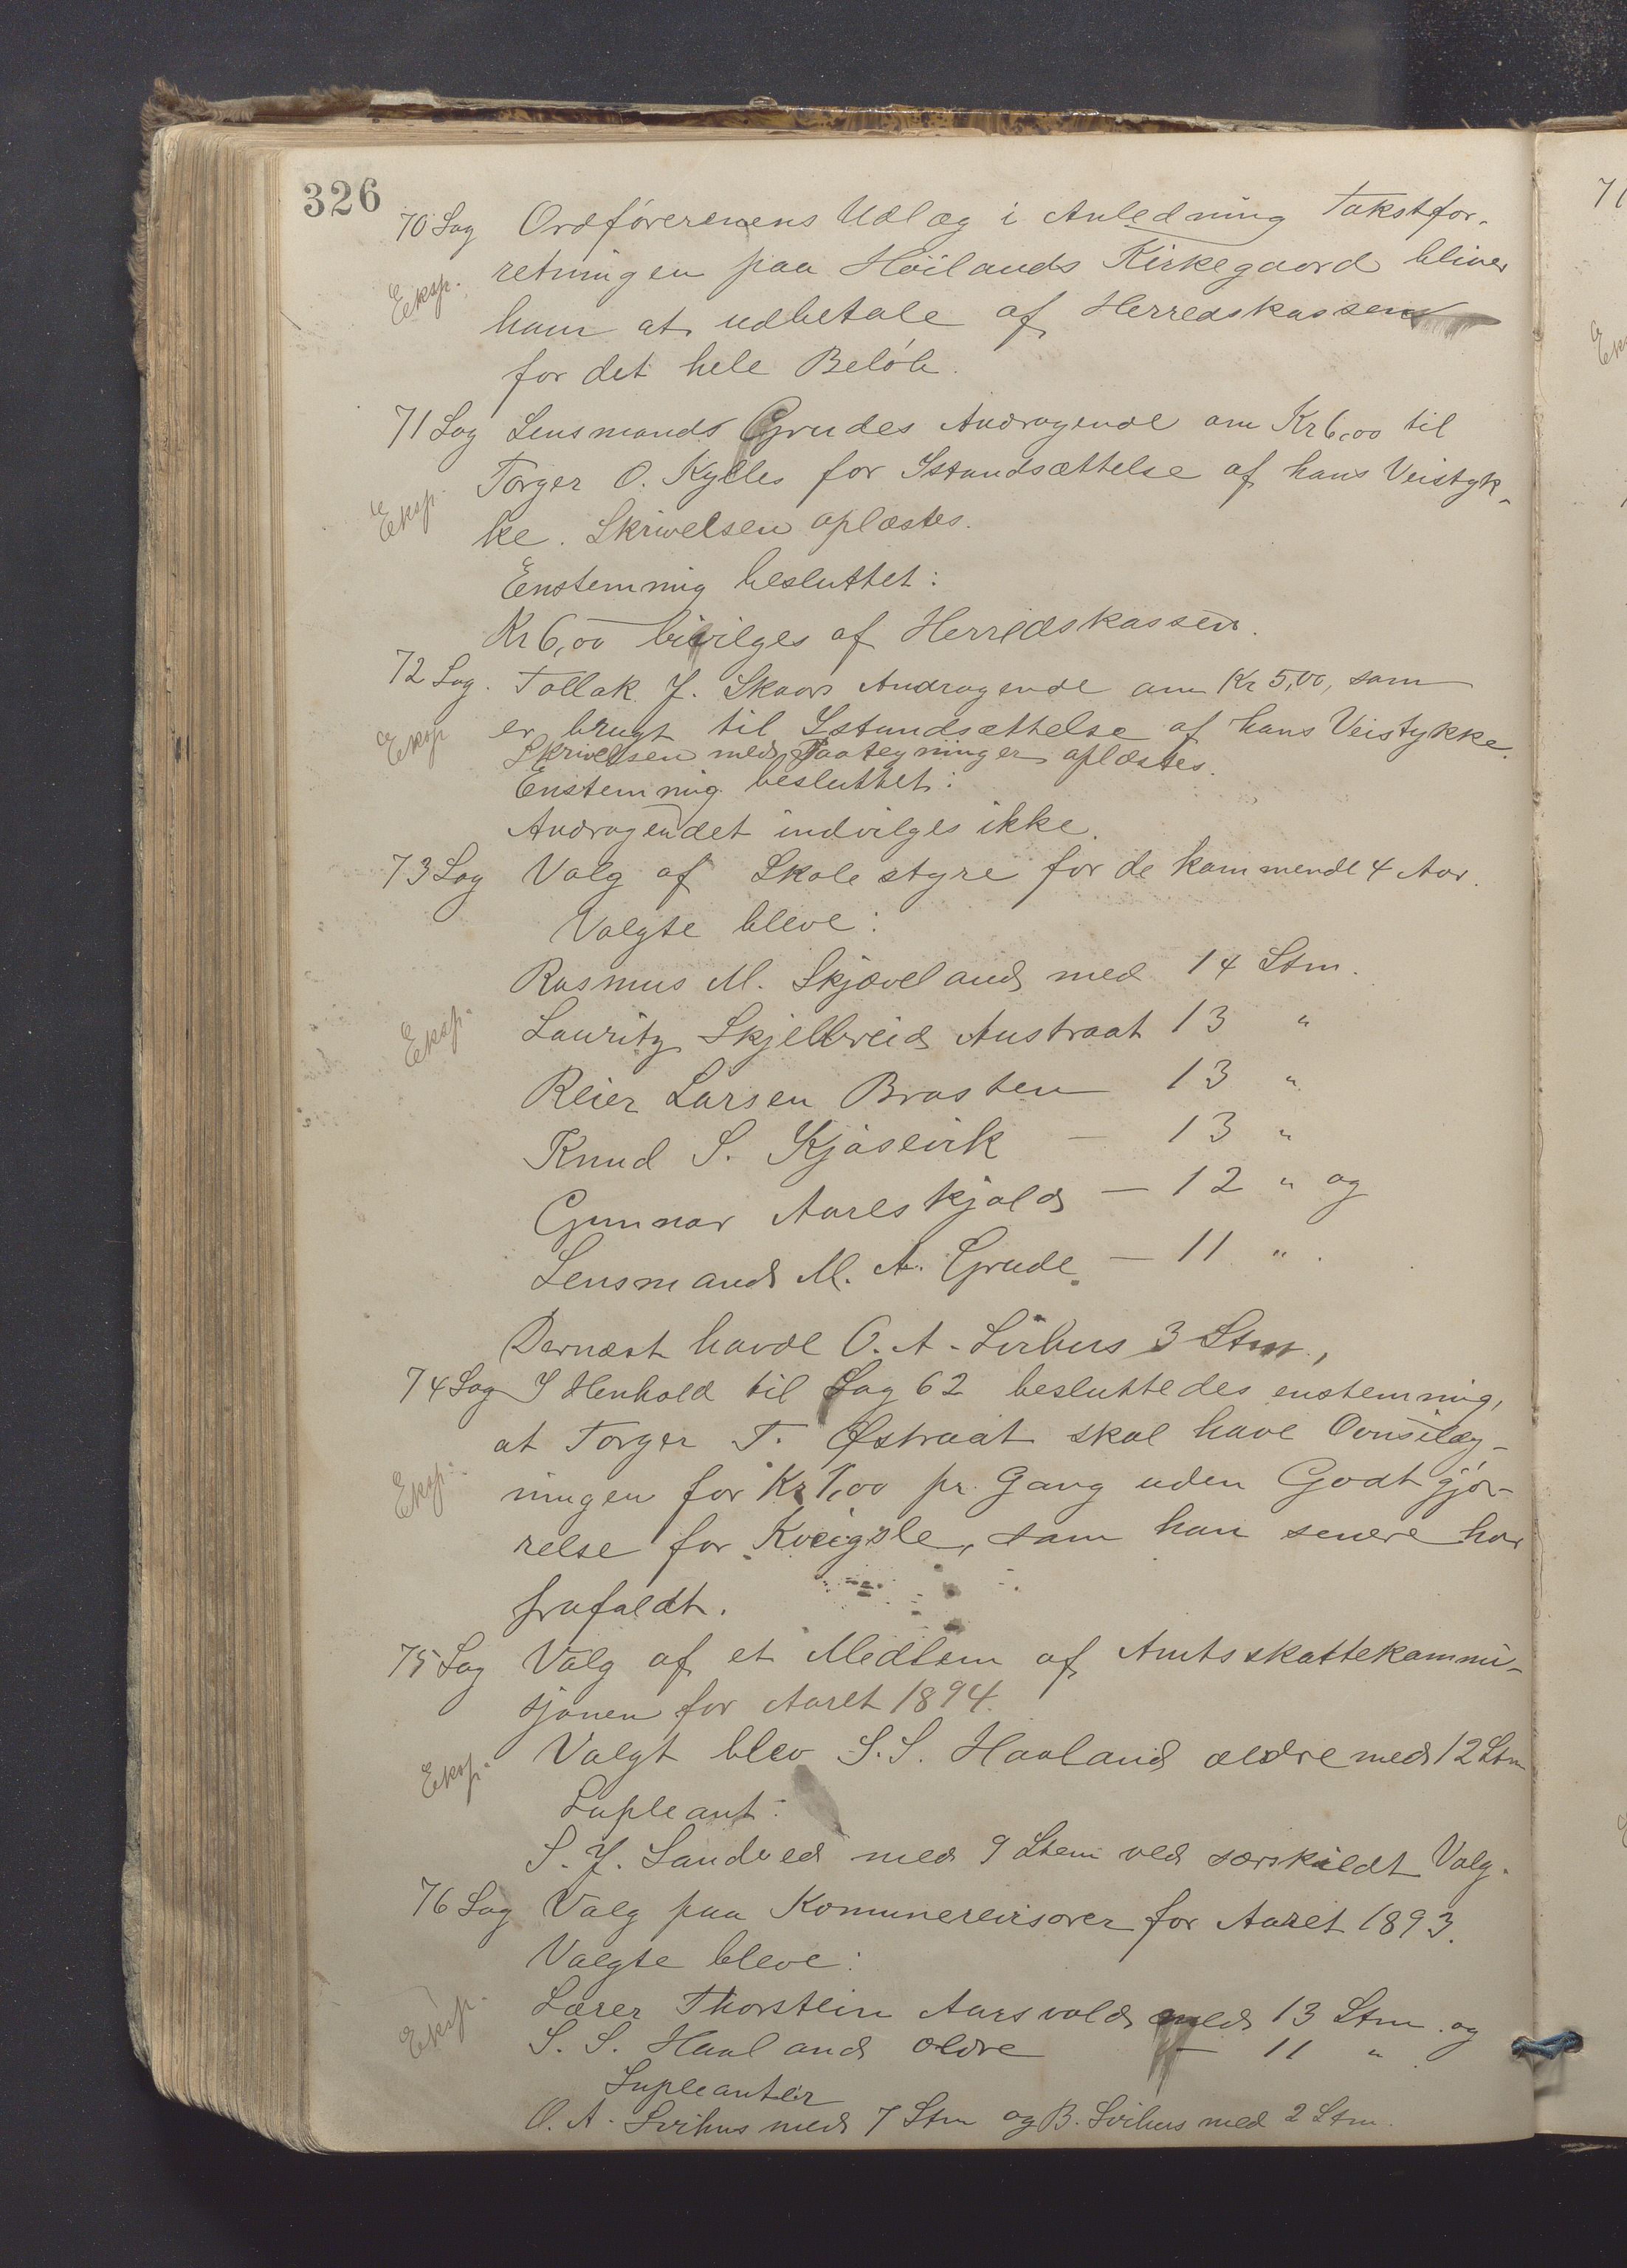 326
70 Sag Ordførerenens Udlæg i Anledning Takstfor-
retningen paa Høilands Kirkegaard bliver
Eksp.
ham at udbetale af Herredskassen
for det hele Beløb.
71 Sag Lensmands Grudes Andragende om Kr 6,00 til
Torger O. Kylles for Istandsættelse af hans Veistyk-
Eksp.
ke. Skrivelsen oplæstes.
Enstemmig besluttet:
Kr 6,00 bivilges af Herredskassen.
72 Sag. Tollak J. Skaars Andragende om Kr 5,00, som
Eksp er brugt til Istandsættelse af hans Veistykke.
Skrivelsen med Paategninger oplæstes.
Enstemmig besluttet:
Andragendet indvilges ikke.
73 Sag Valg af Skolestyre for de kommende 4 Aar.
Valgte bleve:
Rasmus M. Skjæveland med 14 Stm.
Eksp. Lauritz Skjelbreid Austraat 13 "
Reier Larsen Brasten 13 "
Knud S. Kjosevik — 13 "
Gunnar Aareskjold — 12 " og
Lensmand M. A. Grude — 11 ".
Dernæst havde O. A. Svihus 3 Stm.,
74 Sag I Henhold til Sag 62 besluttedes enstemmig,
at Torger T. Østraat skal have Ovnsilæg-
Eksp. ningen for Kr 1,00 pr. Gang uden Godtgjør-
relse for Kveigsle, som han senere har
frafaldt.
75 Sag Valg af et Medlem af Amtsskattekommi-
sjonen for Aaret 1894.
Eksp. Valgt blev S. S. Haaland ældre med 12 Stm
Supleant:
S. J. Sandved med 9 Stem ved særskildt Valg.
76 Sag Valg paa Komunerevisorer for Aaret 1893.
Valgte bleve:
Eksp. Lærer Thorstein Aarsvold med 13 Stm. og
S. S. Haaland ældre — 11 "
Supleanter
O. A. Svihus med 7 Stm og B. Svihus med 2 Stm.
71